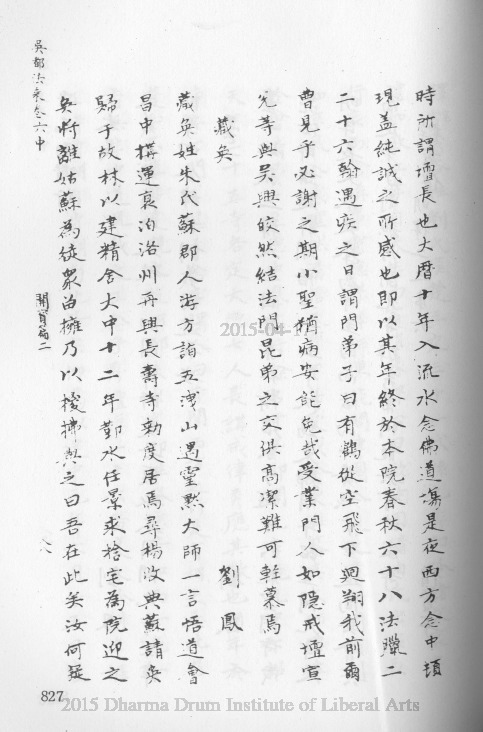 時所謂壇長也大曆十年入流水念佛道塲是夜西方念中頓
現盖純誠之所感也即以其年終於本院春秋六十八法臘二
二十六翰遇疾之日謂門弟子曰有鶴從空飛下迴翔我前爾
曹見乎必謝之期小聖猶病安能免哉受業門人如隱戒壇宣
兄等與吳興皎然結法門昆弟之交俱高潔難可軽慕焉
藏奐
劉鳳
藏奐姓朱氏蘇郡人游方詣五洩山遇靈黙大師一言悟道會
昌中搆運哀泊洛州再與長壽寺勅度居焉尋楊收典蘇請奐
歸于故林以建精舍大中十二年鄞水任景求捨宅為院迎之
奐將離姑蘇為徒衆留擁乃以椶拂與之曰吾在此矣汝何疑
吳都法乘卷六中
開賢篇二
八八
827
2015-04-1
2015 Dharma Drum Institute of Liberal Arts